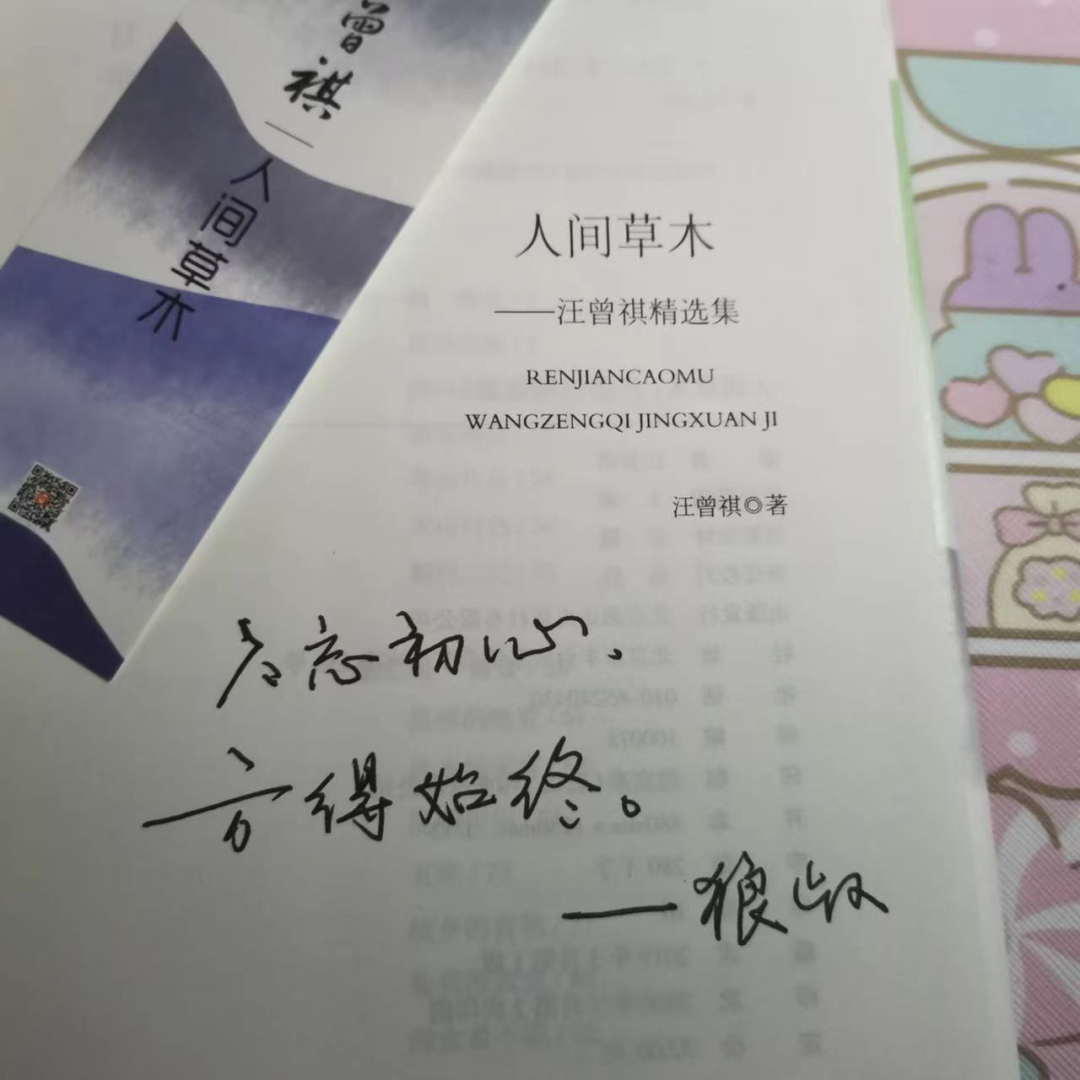 曾祺
人间草木
人间草木
——汪曾祺精选集
RENJIANCAOMU
WANGZENGQI JINGXUAN JI
汪曾祺◎著
勿忘初心、
方得始终。
—狼叔